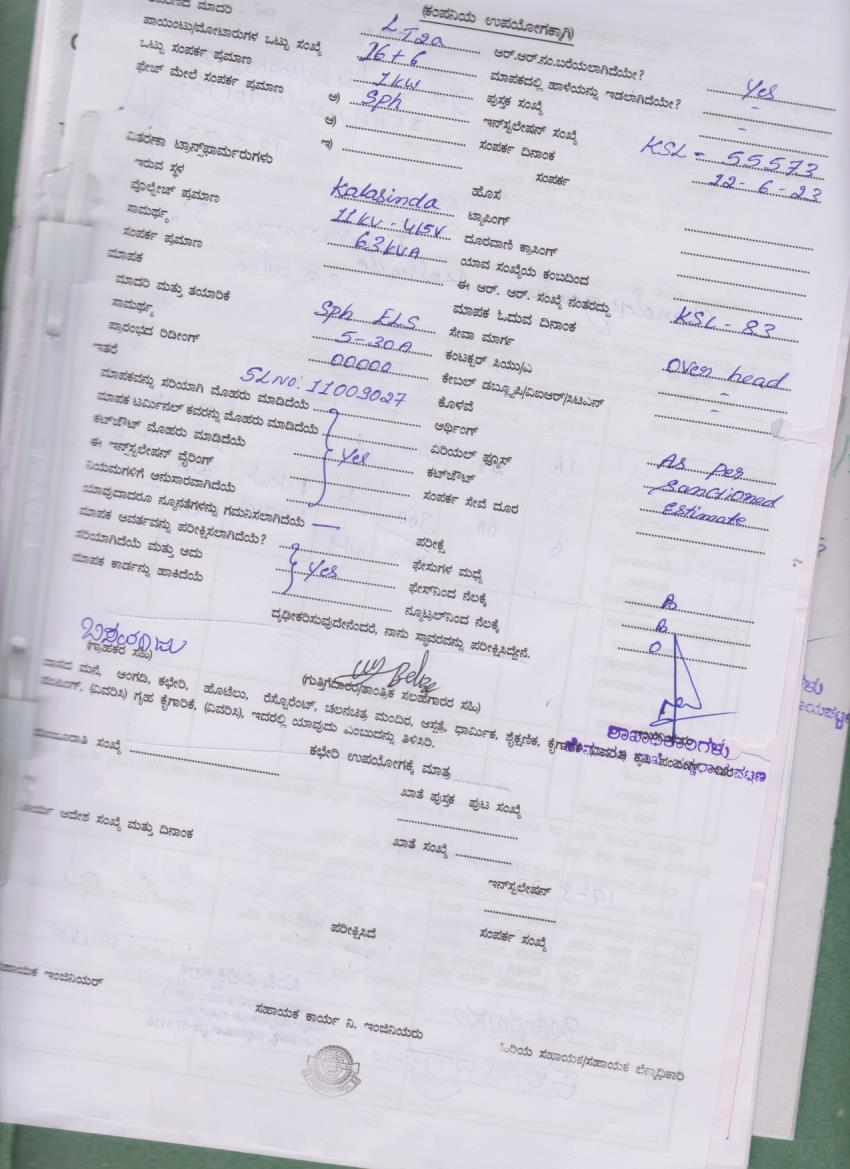 (ಕಂಪನಿಯ ಉಪಯೋಗಕ್ಕಾಗಿ)
ಮಾದರಿ LT2a ಆರ್.ಆರ್.ನಂ.ಬರೆಯಲಾಗಿದೆಯೇ? Yes
ಪಾಯಿಂಟು/ಮೋಟಾರುಗಳ ಒಟ್ಟು ಸಂಖ್ಯೆ 16+6 ಮಾಪಕದಲ್ಲಿ ಹಾಳೆಯನ್ನು ಇಡಲಾಗಿದೆಯೇ? -
ಒಟ್ಟು ಸಂಪರ್ಕ ಪ್ರಮಾಣ 1kw ಪುಸ್ತಕ ಸಂಖ್ಯೆ -
ಫೇಜ್ ಮೇಲೆ ಸಂಪರ್ಕ ಪ್ರಮಾಣ ಅ) Sph ಇನ್‌ಸ್ಟಲೇಷನ್ ಸಂಖ್ಯೆ KSL - 55573
ಆ) ಸಂಪರ್ಕ ದಿನಾಂಕ 12-6-23
ಇ) ಸಂಪರ್ಕ
ವಿತರಣಾ ಟ್ರಾನ್ಸ್‌ಫಾರ್ಮರುಗಳು ಹೊಸ
ಇರುವ ಸ್ಥಳ Kalasinda ಟ್ಯಾಪಿಂಗ್
ವೊಲ್ಟೇಜ್ ಪ್ರಮಾಣ 11KV - 415V ದೂರವಾಣಿ ಕ್ರಾಸಿಂಗ್
ಸಾಮರ್ಥ್ಯ 63KVA ಯಾವ ಸಂಖ್ಯೆಯ ಕಂಬದಿಂದ
ಸಂಪರ್ಕ ಪ್ರಮಾಣ ಈ ಆರ್. ಆರ್. ಸಂಖ್ಯೆ ನಂತರದ್ದು KSL - 83
ಮಾಪಕ ಮಾಪಕ ಓದುವ ದಿನಾಂಕ
ಮಾದರಿ ಮತ್ತು ತಯಾರಿಕೆ Sph ELS ಸೇವಾ ಮಾರ್ಗ Over head
ಸಾಮರ್ಥ್ಯ 5-30A ಕಂಟಕ್ಟರ್ ಸಿಯು/ಎ -
ಪ್ರಾರಂಭದ ರಿಡೀಂಗ್ 00000 ಕೇಬಲ್ ಡಬ್ಲ್ಯೂಪಿ/ವಿಐಆರ್/ಸಿಟಿಎನ್ -
ಇತರೆ SLNO: 11009027 ಕೊಳವೆ
ಮಾಪಕವನ್ನು ಸರಿಯಾಗಿ ಮೊಹರು ಮಾಡಿದೆಯೆ ಅರ್ಥಿಂಗ್
ಮಾಪಕ ಟರ್ಮಿನಲ್ ಕವರನ್ನು ಮೊಹರು ಮಾಡಿದೆಯೆ ಏರಿಯಲ್ ಫ್ಯೂಸ್ As per
ಕಟ್‌ಔಟ್ ಮೊಹರು ಮಾಡಿದೆಯೆ Yes ಕಟ್‌ಔಟ್ sanctioned
ಈ ಇನ್‌ಸ್ಟಲೇಷನ್ ವೈರಿಂಗ್ ಸಂಪರ್ಕ ಸೇವೆ ದೂರ estimate
ನಿಯಮಗಳಿಗೆ ಅನುಸಾರವಾಗಿದೆಯೆ
ಯಾವುದಾದರೂ ನ್ಯೂನತೆಗಳನ್ನು ಗಮನಿಸಲಾಗಿದೆಯೆ — ಪರೀಕ್ಷೆ
ಮಾಪಕ ಆವರ್ತವನ್ನು ಪರೀಕ್ಷಿಸಲಾಗಿದೆಯೆ? ಫೇಸುಗಳ ಮಧ್ಯೆ
ಸರಿಯಾಗಿದೆಯೆ ಮತ್ತು ಅದು Yes ಫೇಸ್‌ನಿಂದ ನೆಲಕ್ಕೆ
ಮಾಪಕ ಕಾರ್ಡನ್ನು ಹಾಕಿದೆಯೆ ನ್ಯೂಟ್ರಲ್‌ನಿಂದ ನೆಲಕ್ಕೆ
ದೃಢೀಕರಿಸುವುದೇನೆಂದರೆ, ನಾನು ಸ್ಥಾವರವನ್ನು ಪರೀಕ್ಷಿಸಿದ್ದೇನೆ.
(ಗ್ರಾಹಕರ ಸಹಿ) (ಗುತ್ತಿಗೆದಾರರ/ತಾಂತ್ರಿಕ ಸಲಹೆಗಾರರ ಸಹಿ)
ಶಾಖಾಧಿಕಾರಿಗಳು
ವಾಸದ ಮನೆ, ಅಂಗಡಿ, ಕಛೇರಿ, ಹೊಟೆಲು, ರೆಸ್ಟೋರೆಂಟ್, ಚಲನಚಿತ್ರ ಮಂದಿರ, ಆಸ್ಪತ್ರೆ, ಧಾರ್ಮಿಕ, ಶೈಕ್ಷಣಿಕ,
ಪಂಪಿಂಗ್, (ವಿವರಿಸಿ) ಗೃಹ ಕೈಗಾರಿಕೆ, (ವಿವರಿಸಿ), ಇದರಲ್ಲಿ ಯಾವುದು ಎಂಬುದನ್ನು ತಿಳಿಸಿರಿ.
ಕಛೇರಿ ಉಪಯೋಗಕ್ಕೆ ಮಾತ್ರ
ಸಂಖ್ಯೆ ಖಾತೆ ಪುಸ್ತಕ ಪುಟ ಸಂಖ್ಯೆ
ಆದೇಶ ಸಂಖ್ಯೆ ಮತ್ತು ದಿನಾಂಕ ಖಾತೆ ಸಂಖ್ಯೆ
ಇನ್‌ಸ್ಟಲೇಷನ್
ಪರೀಕ್ಷಿಸಿದೆ ಸಂಪರ್ಕ ಸಂಖ್ಯೆ
ಸಹಾಯಕ ಇಂಜಿನಿಯರ್ ಸಹಾಯಕ ಕಾರ್ಯ ನಿ. ಇಂಜಿನಿಯರು ಹಿರಿಯ ಸಹಾಯಕ/ಸಹಾಯಕ ಲೆಕ್ಕಾಧಿಕಾರಿ